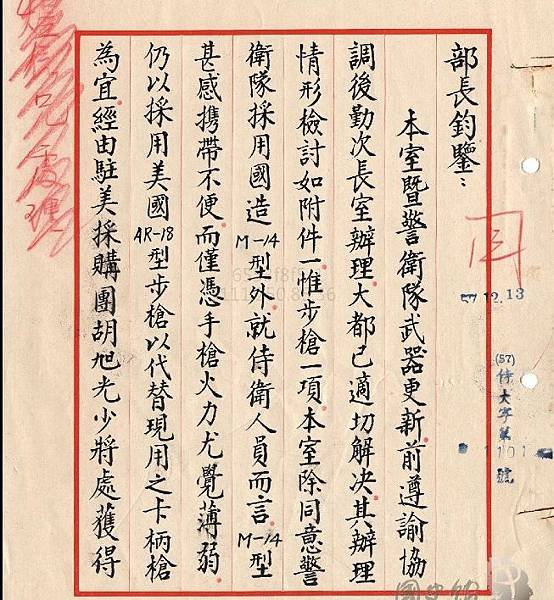 部長鈞鑒：
本室暨警衛隊武器更新前遵諭協
調後勤次長室辦理大都已適切解決其辦理
情形檢討如附件一惟步槍一項本室除同意警
衛隊採用國造M-14型外就侍衛人員而言M-14型
甚感攜帶不便而僅憑手槍火力尤覺薄弱
仍以採用美國AR-18型步槍以代替現用之卡柄槍
為宜經由駐美採購團胡旭光少將處獲得
57.12.13
(57)侍大字第1101號